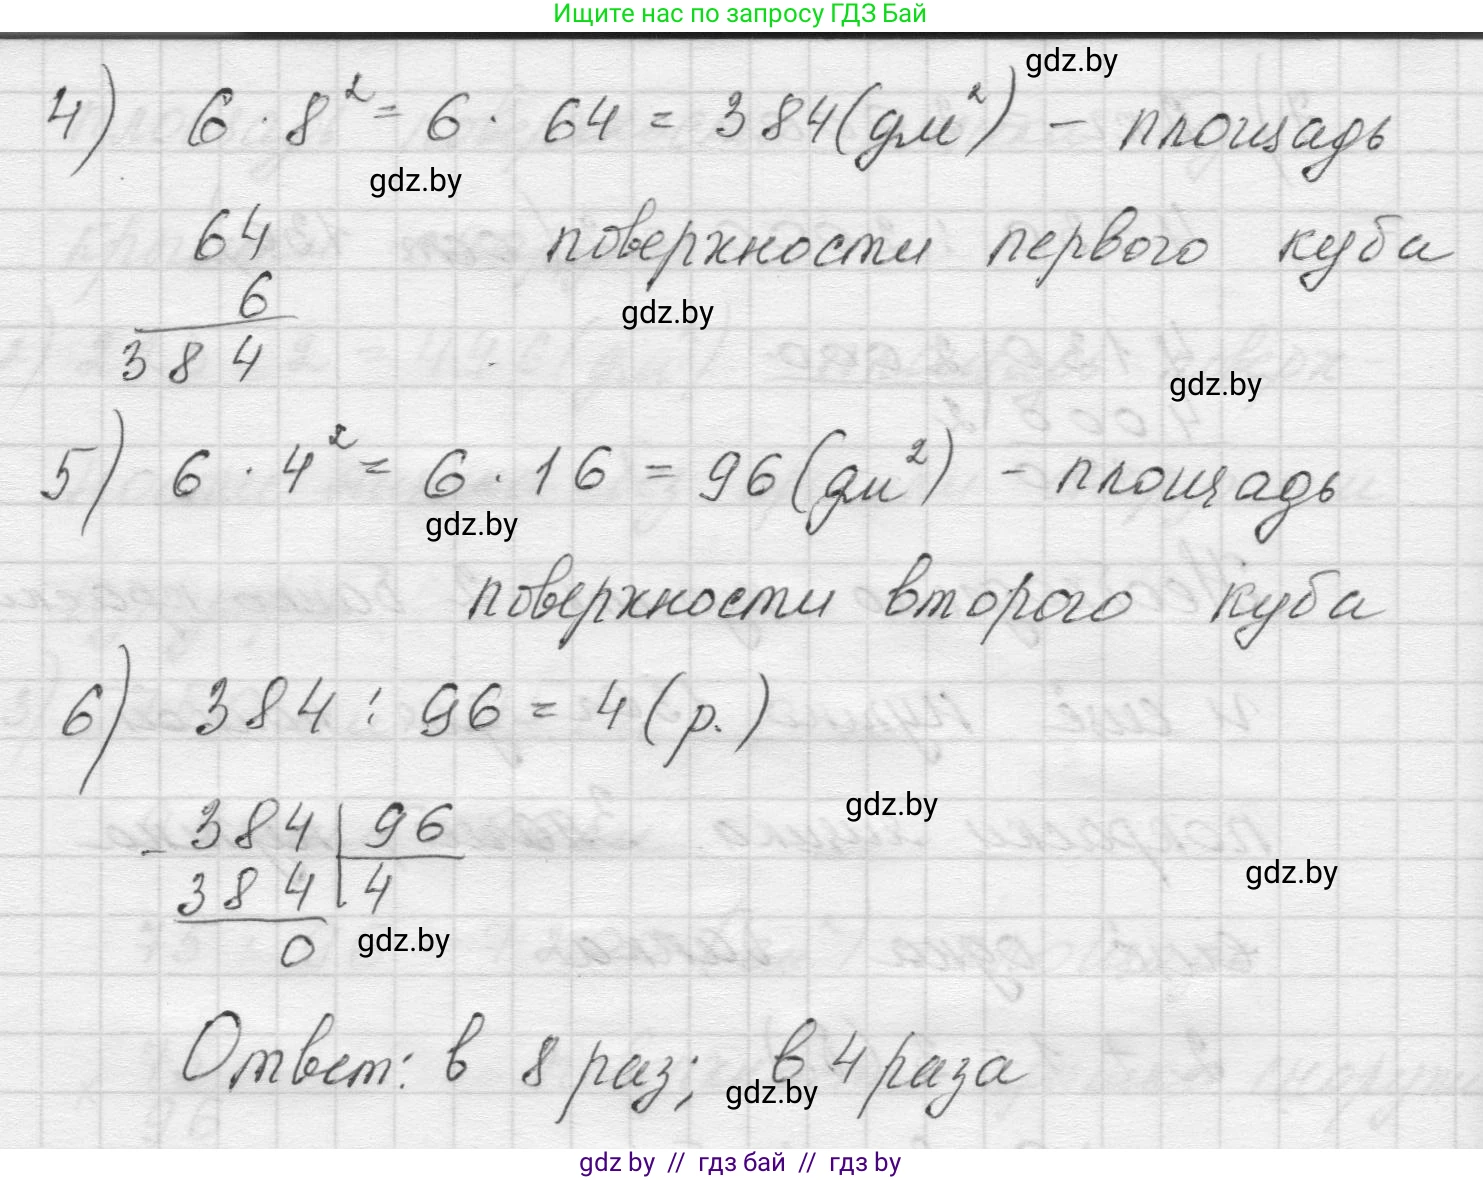 Ищите нас по запросу ГДЗ Бай
gdz.by
4) 6 · 8² = 6 · 64 = 384 (дм²) – площадь
gdz.by
64 поверхности первого куба
6
gdz.by
384
gdz.by
5) 6 · 4² = 6 · 16 = 96 (дм²) – площадь
gdz.by
поверхности второго куба
6) 384 : 96 = 4 (р.)
gdz.by
- 384 | 96
384 | 4
gdz.by
0
gdz.by
Ответ: в 8 раз; в 4 раза
gdz.by
gdz by // гдз бай // гдз by